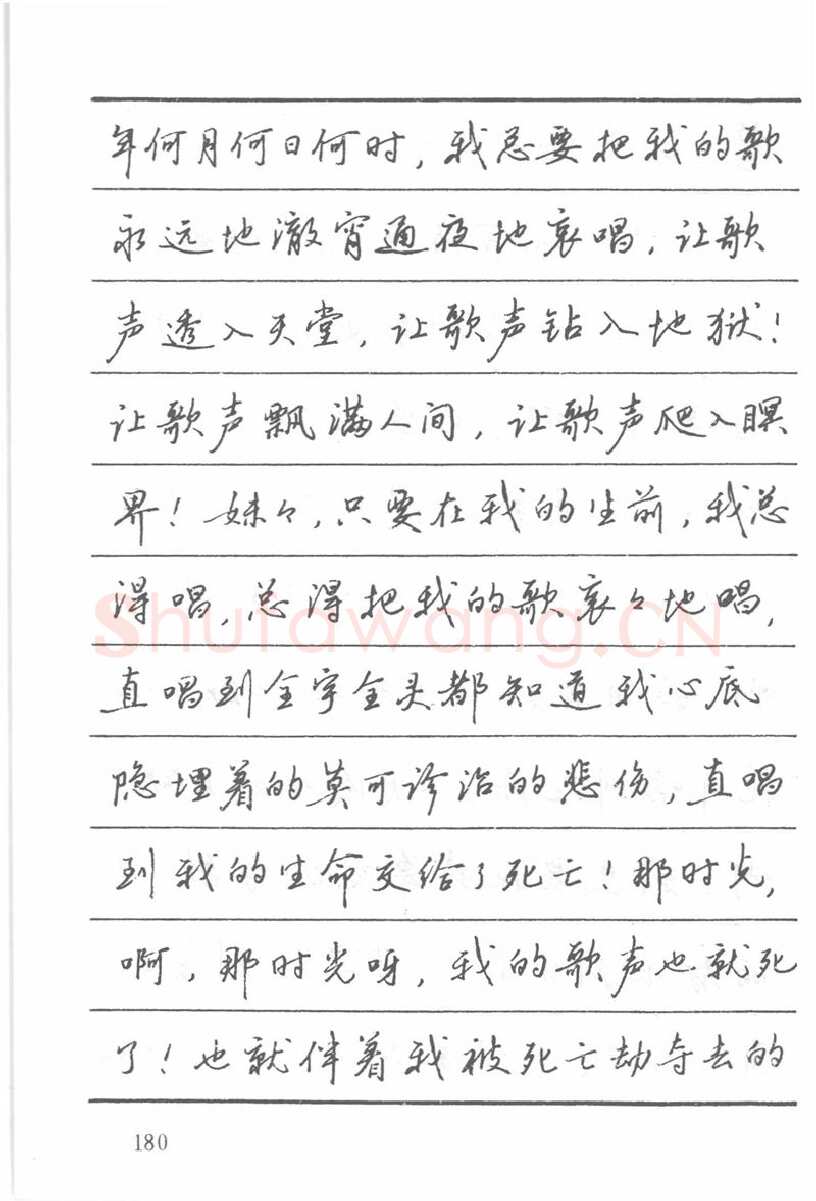 年何月何日何时，我总要把我的歌
永远地澈宵通夜地哀唱，让歌
声透入天堂，让歌声钻入地狱！
让歌声飘满人间，让歌声爬入瞑
界！妹々，只要在我的生前，我总
得唱，总得把我的歌哀々地唱，
直唱到全宇全灵都知道我心底
隐埋着的莫可诊治的悲伤，直唱
到我的生命交给了死亡！那时光，
啊，那时光呀，我的歌声也就死
了！也就伴着我被死亡劫夺去的
180
Shufawang.CN